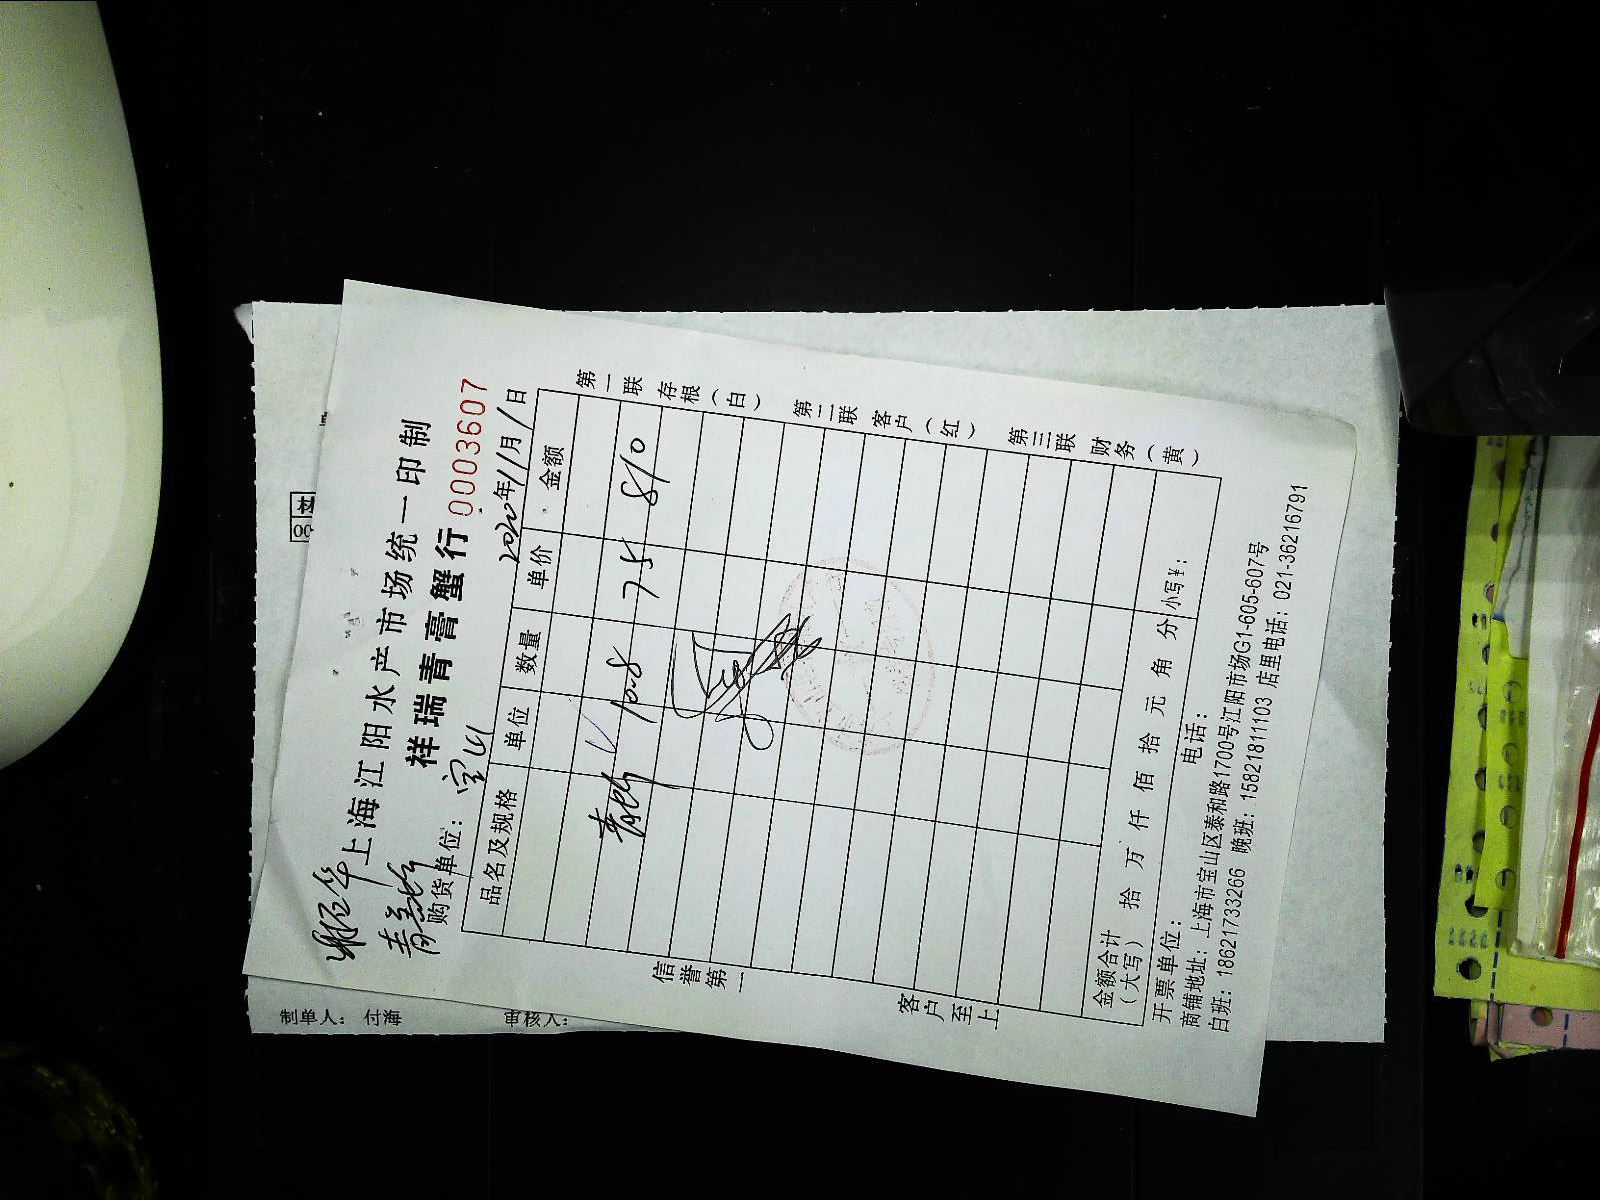 上海江阳水产市场统一印制
祥瑞青膏蟹行
0003607
购货单位：宝山
2020年11月1日
品名及规格 单位 数量 单价 金额
10.8 75 810
金额合计（大写） 拾 万 仟 佰 拾 元 角 分 小写¥：
开票单位： 电话：
商铺地址：上海市宝山区泰和路1700号江阳市场G1-605-607号
白班：18621733266 晚班：15821811103 店里电话：021-36216791
信誉第一
客户至上
第一联 存根（白）
第二联 客户（红）
第三联 财务（黄）
制单人：
审核人：